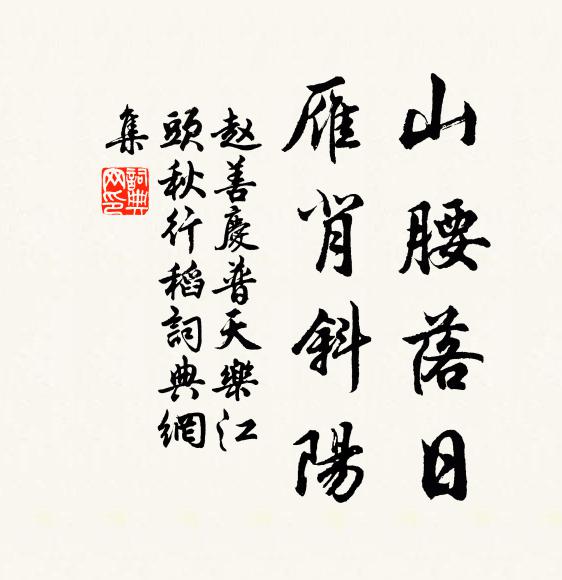 山腰落日
雁背斜陽
赵善慶普天樂江
頭秋行稻詞典網
集
詞典
网印